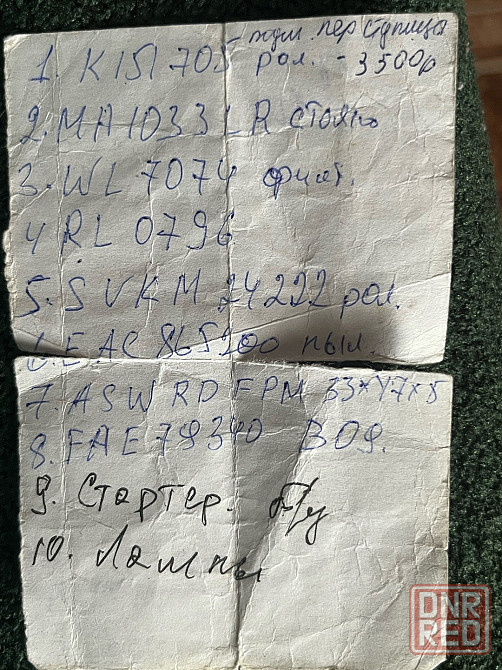 подш. пер ступица
1. K151705 рол. - 3500р
2. MA1033LR стойка
3. WL 7074 фильт.
4 RL 0796
5. SVKM 24222 рол.
6. EAC 865200 пыл.
7. ASW RD FPM 33×47×5
8. FAE 79340 вод.
9. Стартер. б/у
10. Лампы
DNR
RED